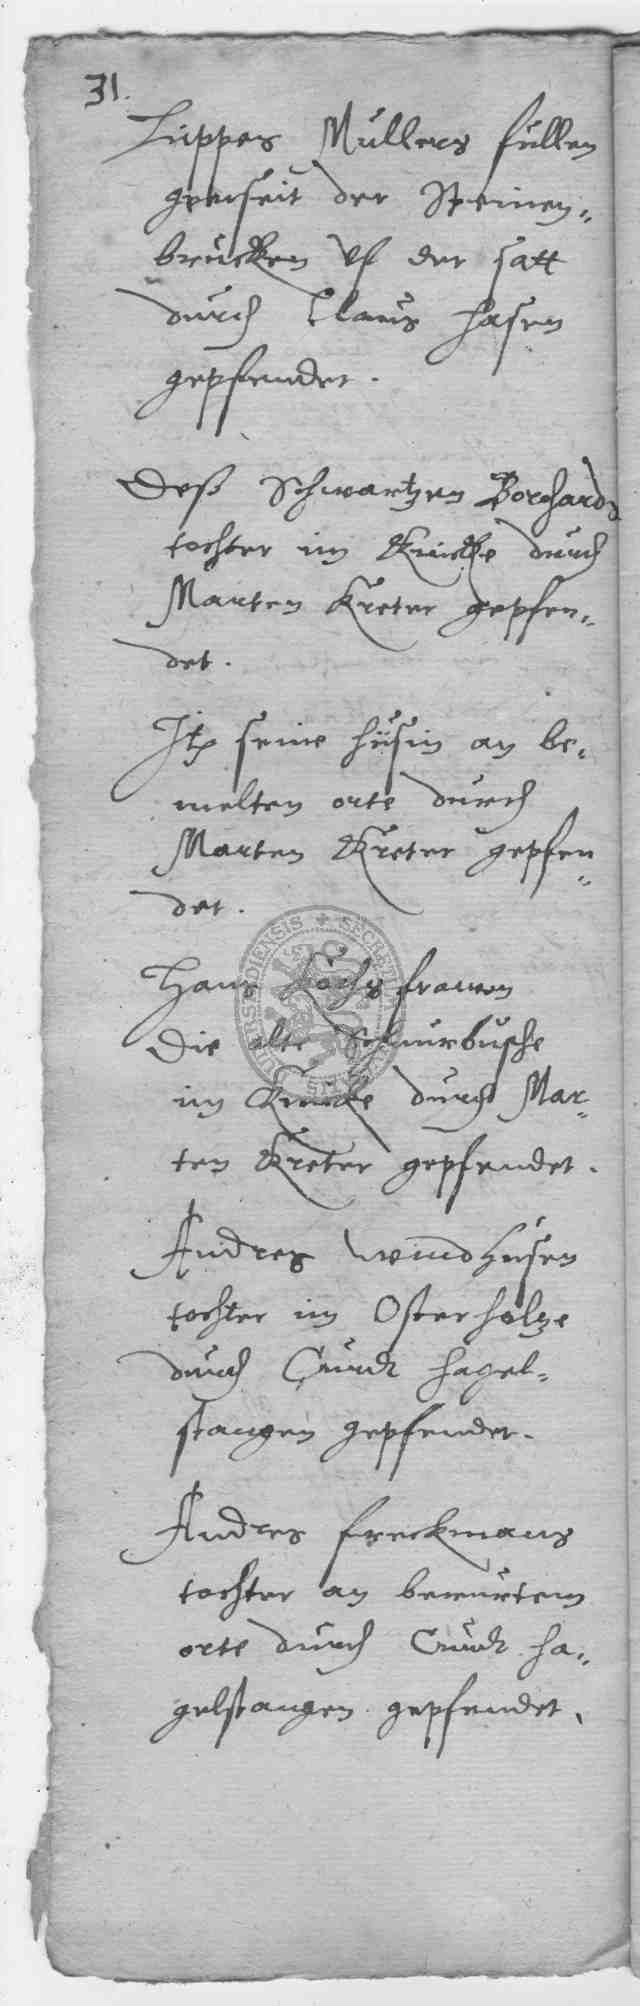 31.
Lippes Müllers füllen
genseit der Steinen„
brücken vf der satt
durch Claus Hasen
gepfendet.
Deß Schwartzen Borchards
tochter im Knicke durch
Marten Kreter gepfen„
det.
Itz seine hüsin an be„
melten orte durch
Marten Kreter gepfen„
det.
Hans Kochs frawen
Die alte Schnurbusche
im Knicke durch Mar„
ten Kreter gepfendet.
Andres Windhusen
tochter im Osterholtze
durch Curdt Hagel„
stangen gepfendet.
Andres freckmans
tochter an berurtem
orte durch Curdt Ha„
gelstangen gepfendet.